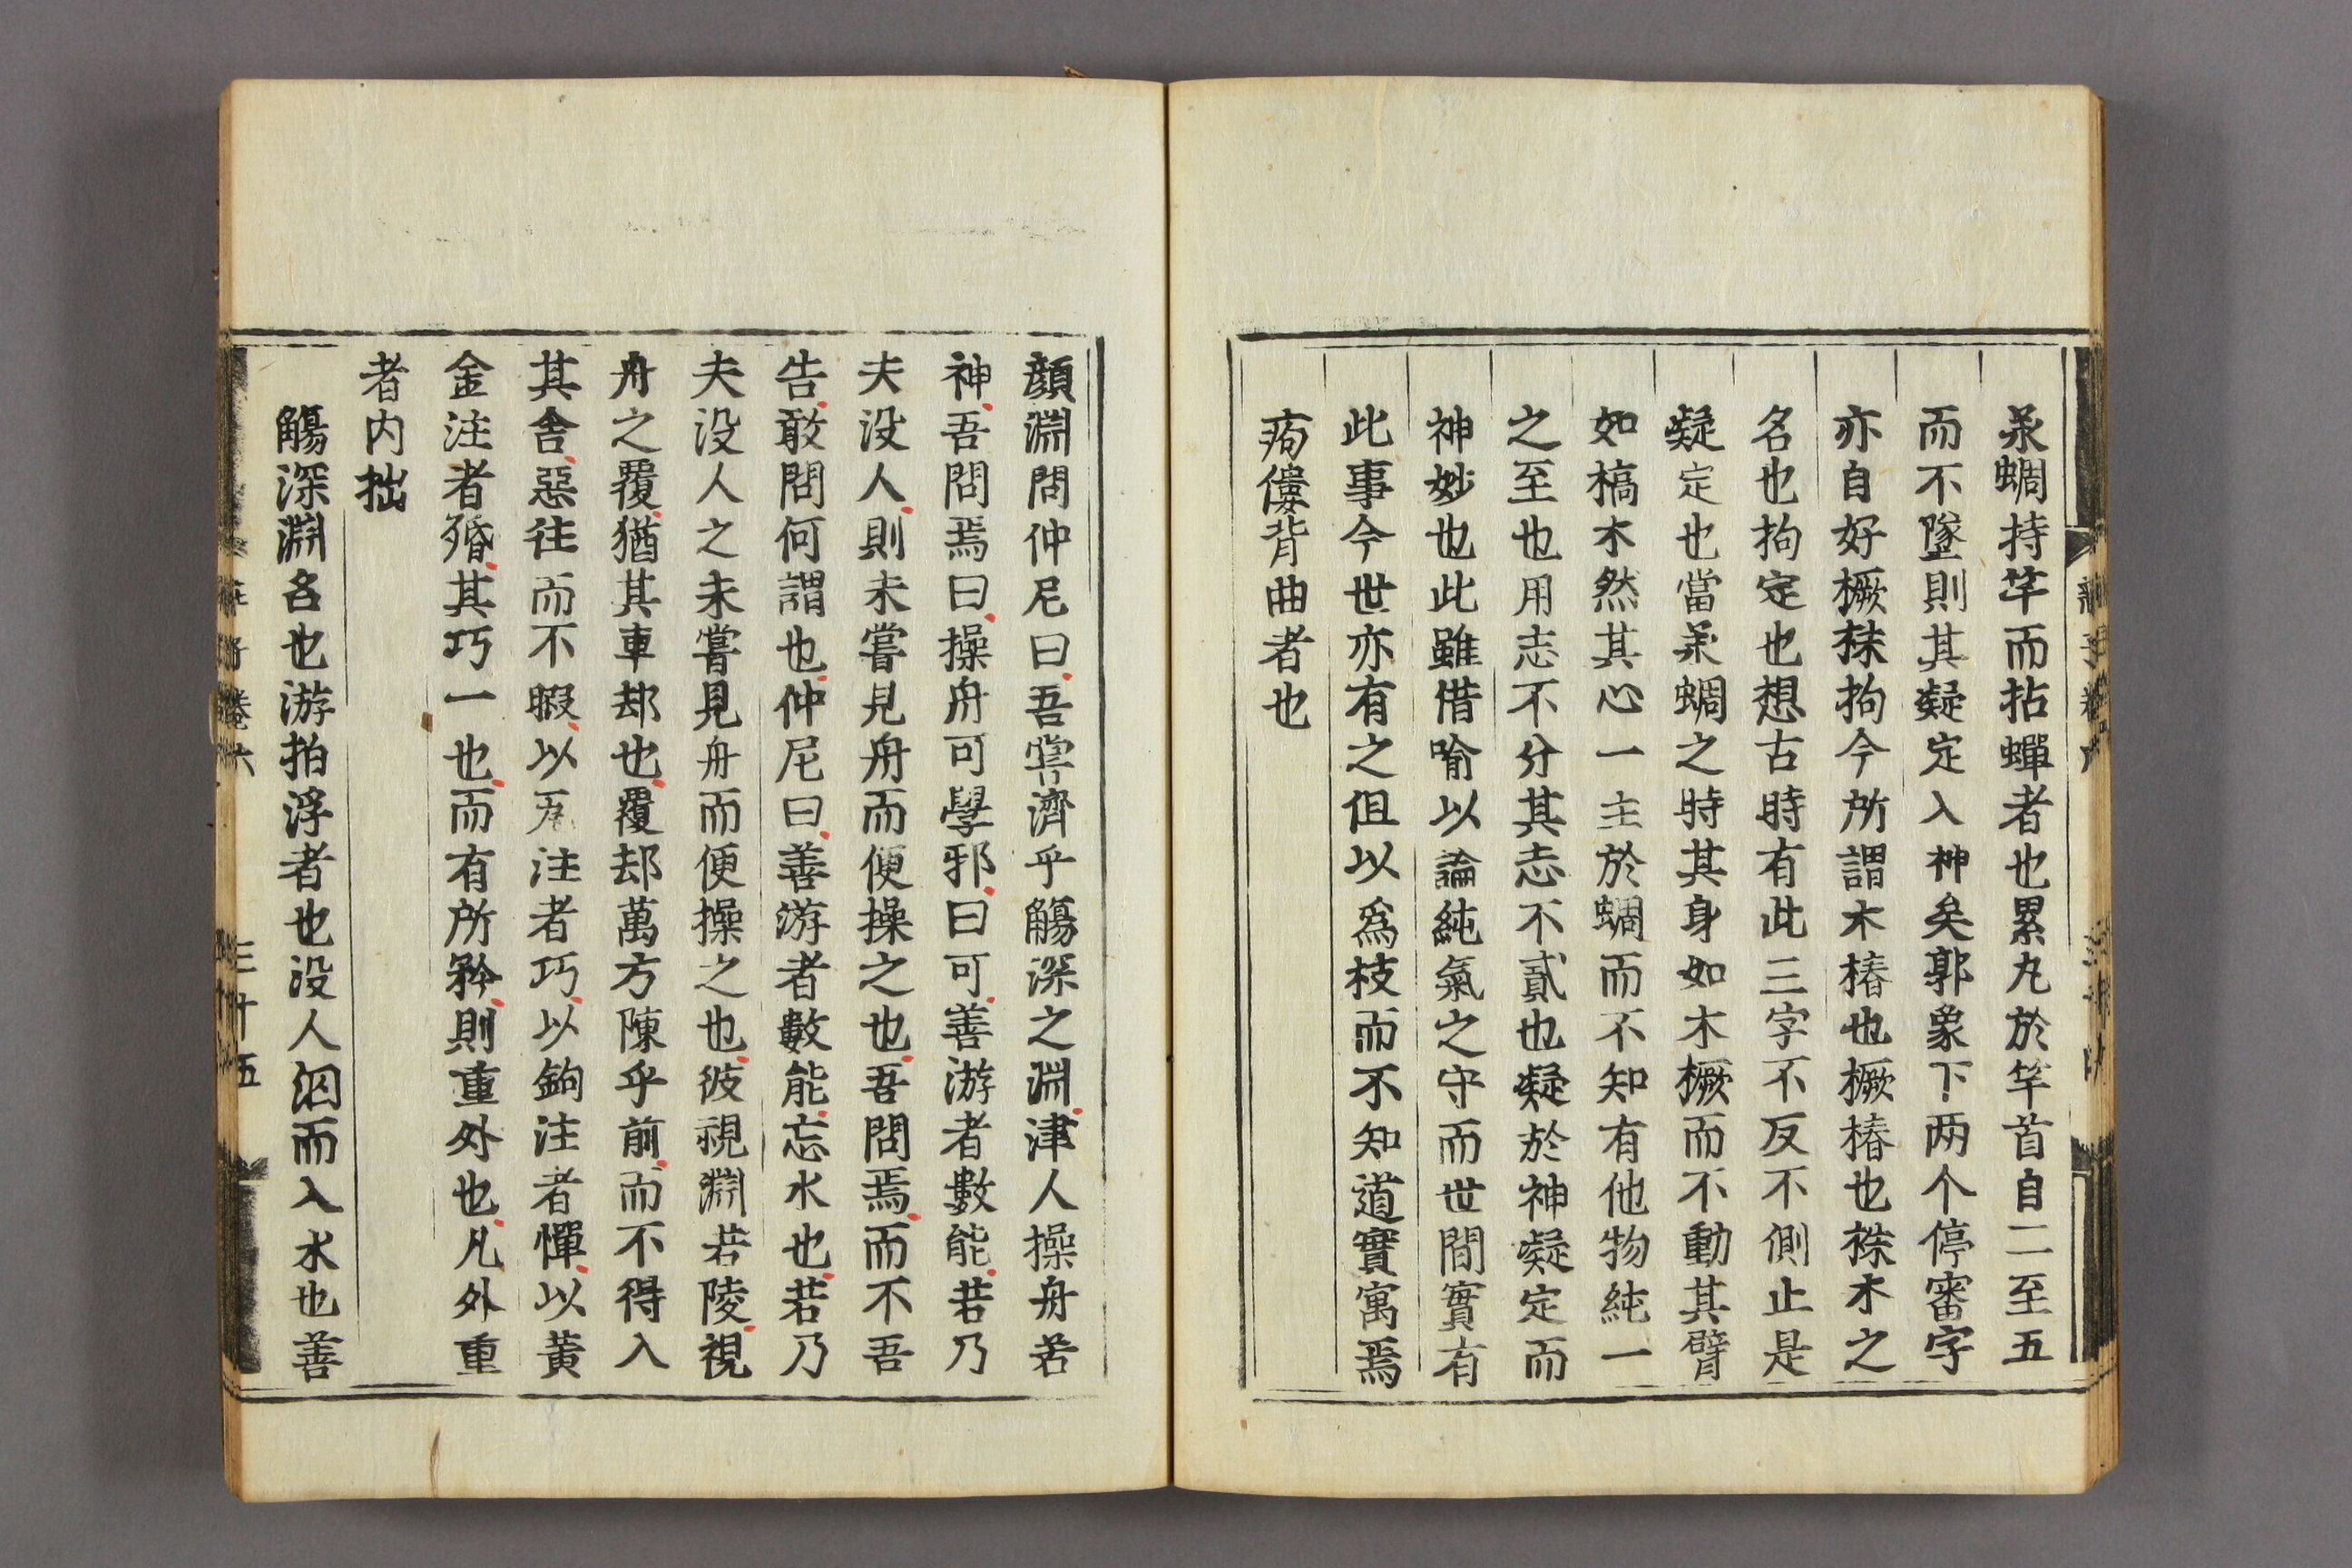 承蜩持竿而拈蟬者也累丸於竿首自二至五
而不墜則其凝定入神矣郭象下两个停審字
亦自好橛株拘今所謂木樁也橛樁也株木之
名也拘定也想古時有此三字不反不側止是
凝定也當承蜩之時其身如木橛而不動其臂
如槁木然其心一主於蜩而不知有他物純一
之至也用志不分其志不貳也凝於神凝定而
神妙也此雖借喻以論純氣之守而世間實有
此事今世亦有之但以爲枝而不知道實寓焉
痀僂背曲者也
顔淵問仲尼曰吾甞濟乎觴深之淵津人操舟若
神吾問焉曰操舟可學邪曰可善游者數能若乃
夫没人則未嘗見舟而便操之也吾問焉而不吾
告敢問何謂也仲尼曰善游者數能忘水也若乃
夫没人之未嘗見舟而便操之也彼視淵若陵視
舟之覆猶其車却也覆却萬方陳乎前而不得入
其舍惡往而不暇以瓦注者巧以鉤注者憚以黄
金注者殙其巧一也而有所矜則重外也凡外重
者内拙
觴深淵名也游拍浮者也没人泅而入水也善
卷六
三十五